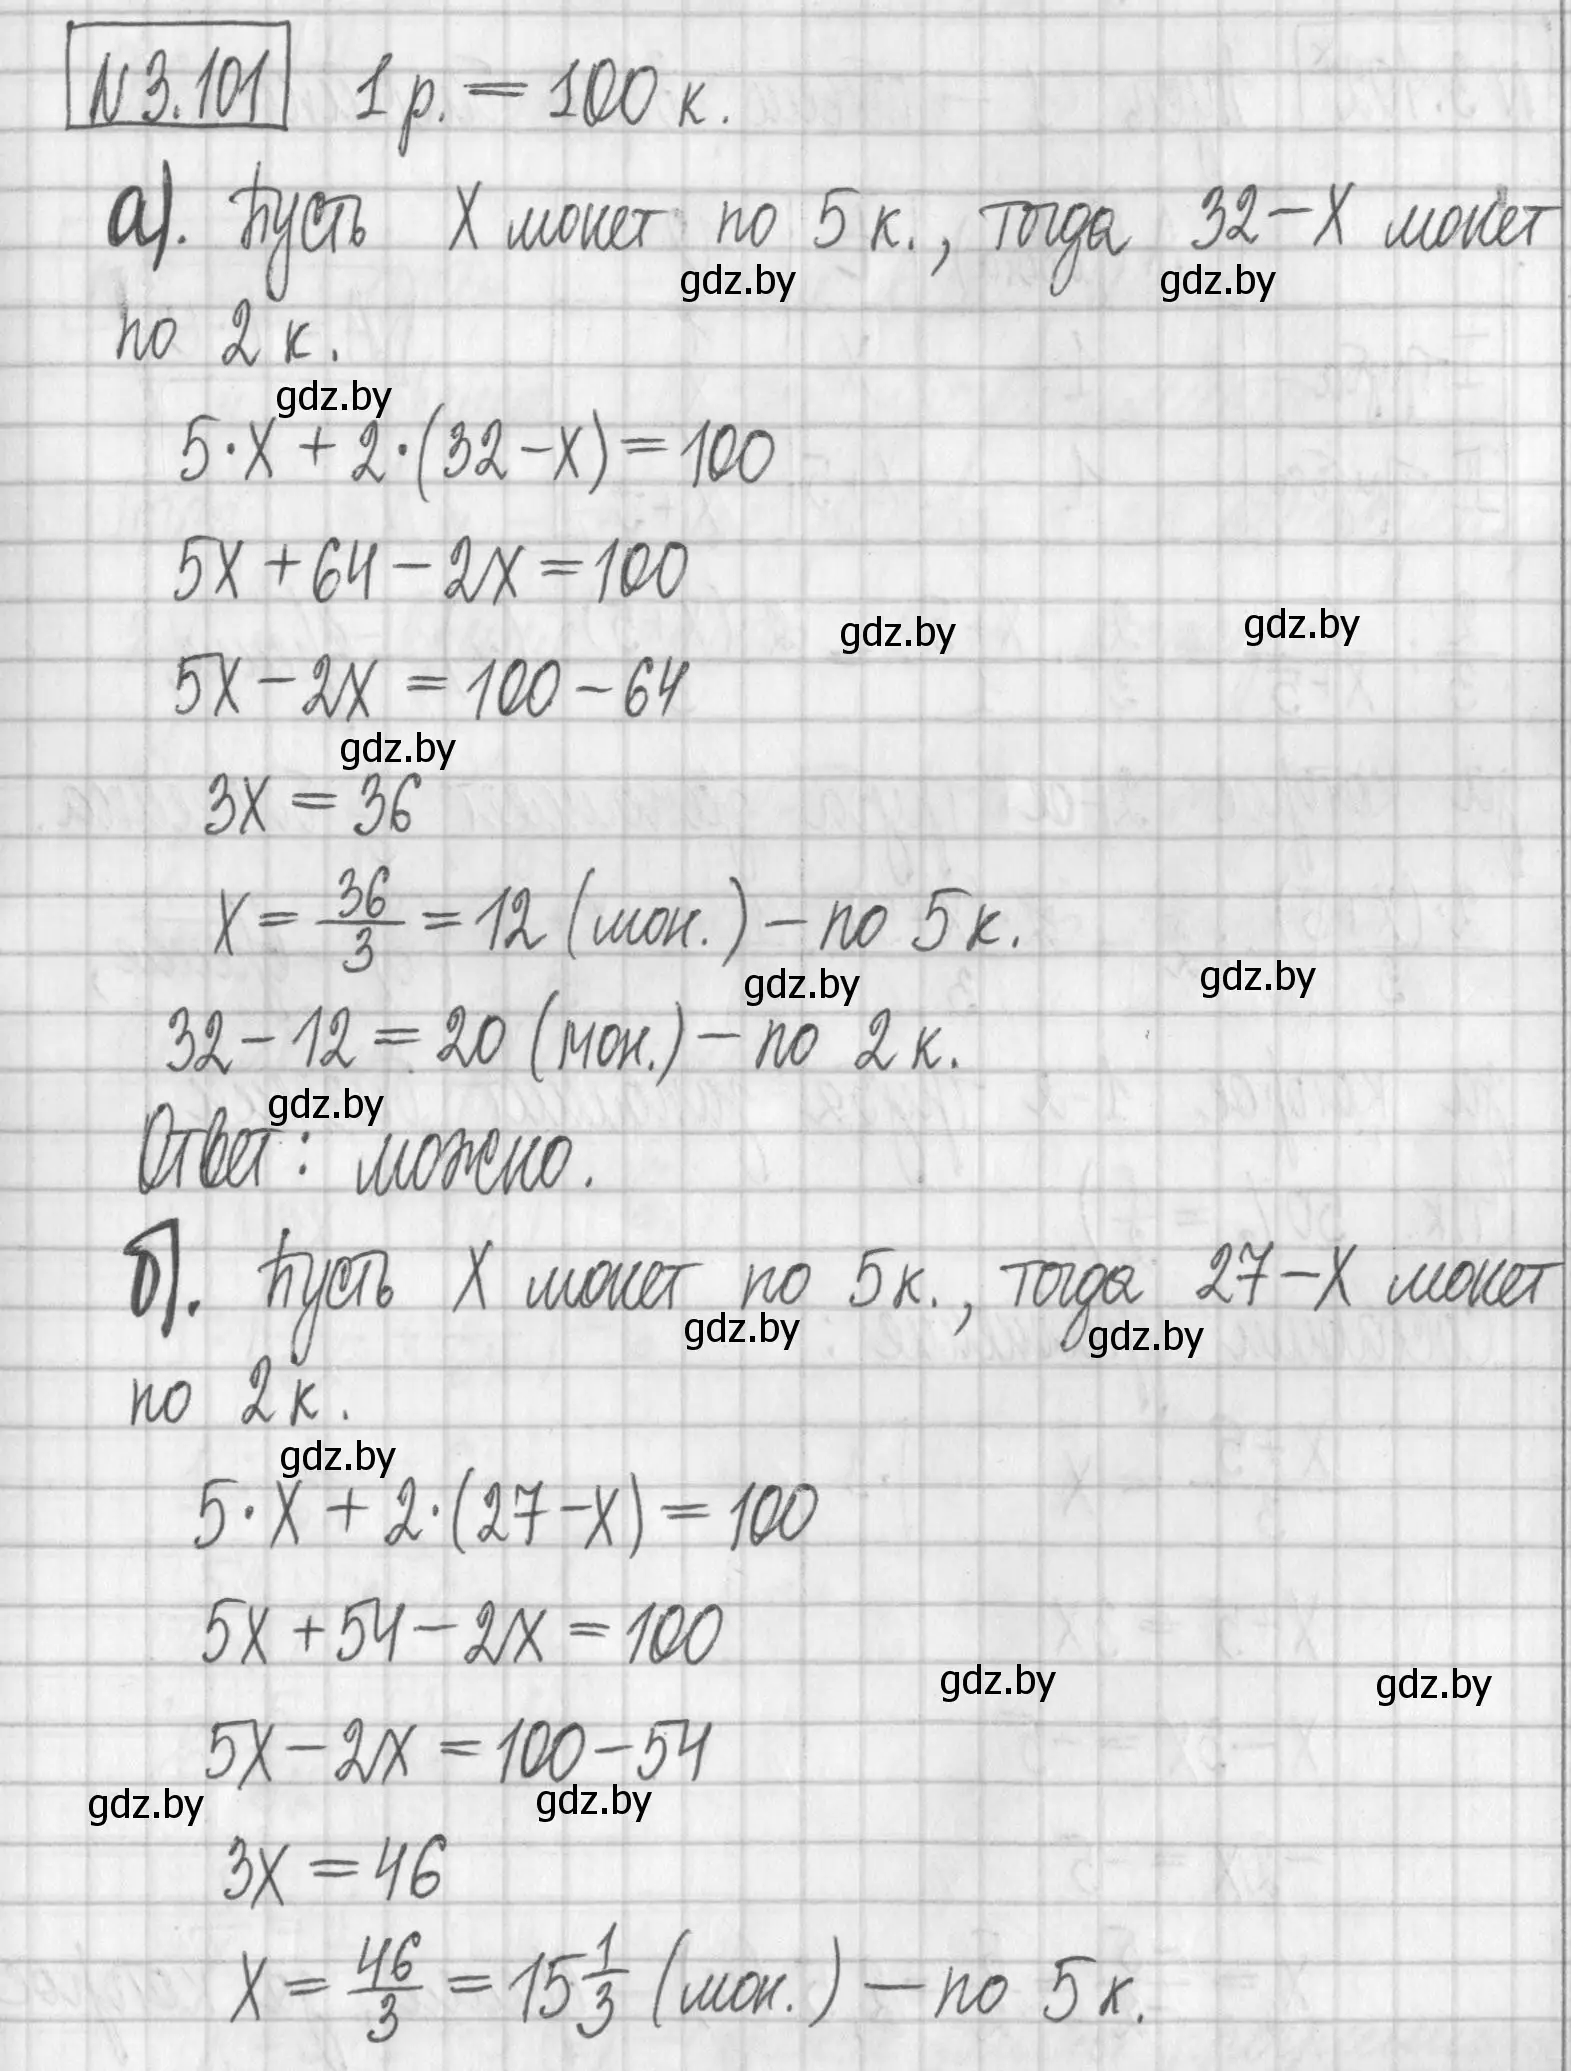 N 3.101 1 р. = 100 к.
а). Пусть x монет по 5 к., тогда 32 - x монет
gdz.by gdz.by
по 2 к.
gdz.by
5·x + 2·(32 - x) = 100
5x + 64 - 2x = 100
gdz.by gdz.by
5x - 2x = 100 - 64
gdz.by
3x = 36
x = 36/3 = 12 (мон.) - по 5 к.
gdz.by gdz.by
32 - 12 = 20 (мон.) - по 2 к.
gdz.by
Ответ: можно.
б). Пусть x монет по 5 к., тогда 27 - x монет
gdz.by gdz.by
по 2 к.
gdz.by
5·x + 2·(27 - x) = 100
5x + 54 - 2x = 100
gdz.by gdz.by
5x - 2x = 100 - 54
gdz.by gdz.by
3x = 46
x = 46/3 = 15 1/3 (мон.) - по 5 к.